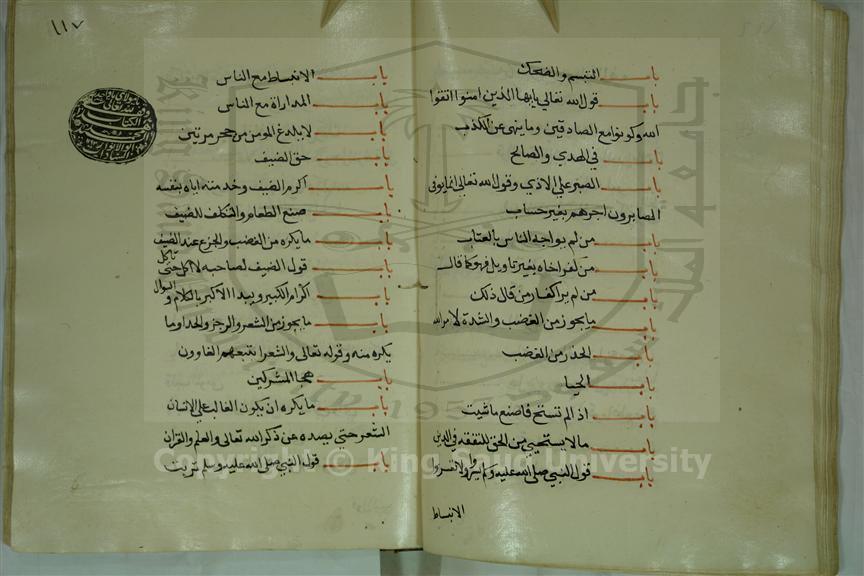 باب التبسم والضحك
باب قول الله تعالى يايها الذين امنوا اتقوا
الله وكونوا مع الصادقين وما ينهى عن الكذب
باب في الهدي والصالح
باب الصبر على الاذي وقول الله تعالى انما يوفى
الصابرون اجرهم بغير حساب
باب من لم يواجه الناس بالعتاب
باب من كفر اخاه بغير تاويل فهو كما قال
باب من لم ير اكفار من قال ذلك
باب ما يجوز من الغضب والشدة لامر الله
باب الحذر من الغضب
باب الحيا
باب اذا لم تستح فاصنع ما شيت
باب ما لا يستحيي من الحق للتفقه في الدين
باب قول النبي صلى الله عليه وسلم يسروا ولا تعسروا
الانبساط
١١٧
باب الانبساط مع الناس
باب المداراة مع الناس
باب لا يلدغ المومن من جحر مرتين
باب حق الضيف
باب اكرام الضيف وخدمته اياه بنفسه
باب صنع الطعام والتكلف للضيف
باب ما يكره من الغضب والجزع عند الضيف
باب قول الضيف لصاحبه لا اكل حتى تاكل
باب اكرام الكبير ويبدا الاكبر بالكلام والسوال
باب ما يجوز من الشعر والرجز والحدا وما
يكره منه وقوله تعالى والشعرا يتبعهم الغاوون
باب هجا المشركين
باب ما يكره ان يكون الغالب على الانسان
الشعر حتى يصده عن ذكر الله تعالى والعلم والقران
باب قول النبي صلى الله عليه وسلم تربت
Copyright © King Saud University
جامعة الملك
1957